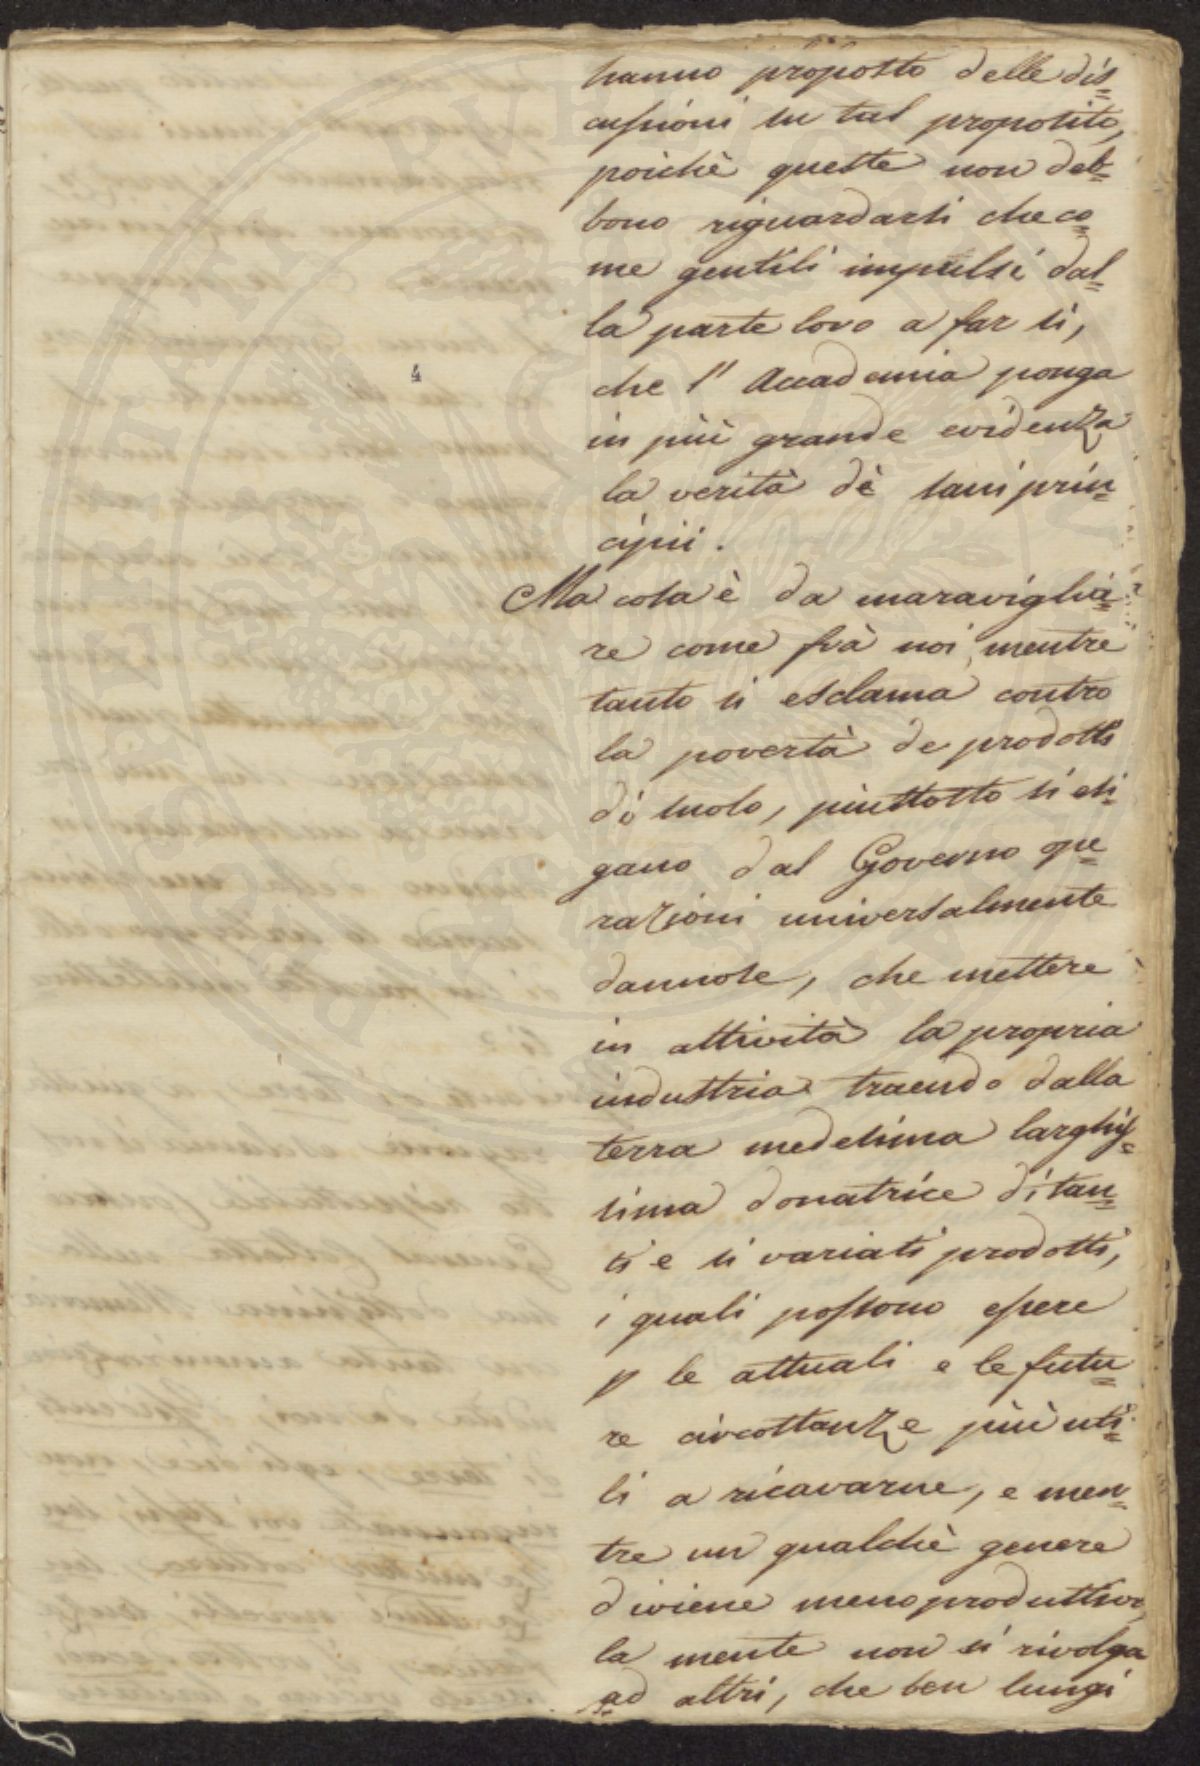 hanno proposto delle dis=
cussioni su tal proposito,
poichè queste non deb=
bono riguardarsi che co=
me gentili impulsi dal=
la parte loro a far sì,
che l'Accademia ponga
in più grande evidenza
la verità dè sani prin=
cipii.
4
Ma cosa è da maraviglia=
re come frà noi, mentre
tanto si esclama contro
la povertà de prodotti
di suolo, piuttosto si esi=
gano dal Governo ope=
razioni universalmente
dannose, che mettere
in attività la propria
industria traendo dalla
terra medesima larghis=
sima donatrice di tan=
ti e sì variati prodotti,
i quali possono essere
p le attuali e le futu=
re circostanze più uti=
li a ricavarne, e men=
tre un qualchè genere
diviene meno produttivo,
la mente non si rivolga
ad altri, che ben lungi